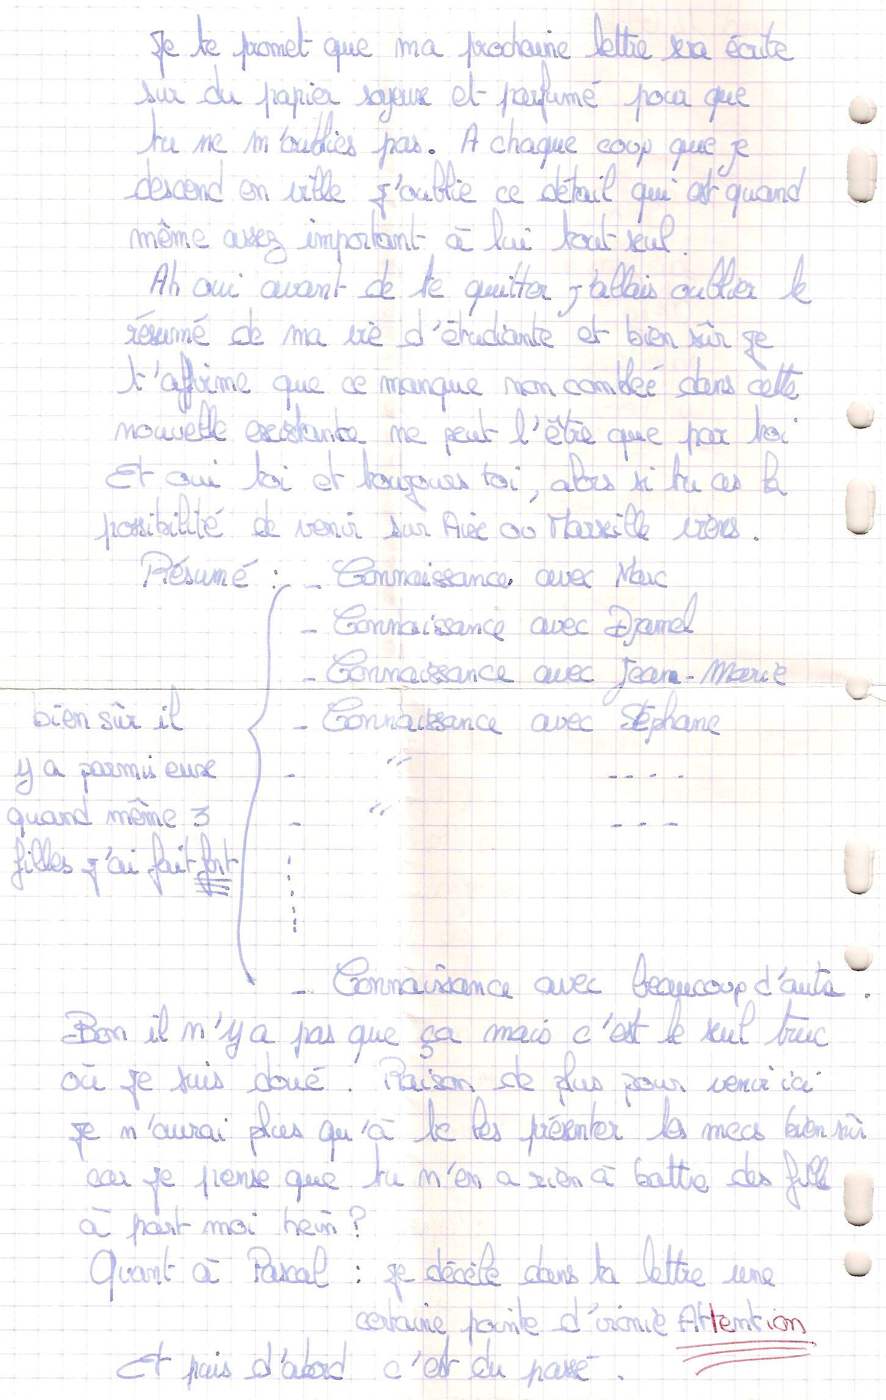 Je te promet que ma prochaine lettre sera écrite
sur du papier soyeux et parfumé pour que
tu ne m'oublies pas. A chaque coup que je
descend en ville j'oublie ce détail qui est quand
même assez important à lui tout seul.
Ah oui avant de te quitter j'allais oublier le
résumé de ma vie d'étudiante et bien sûr je
t'affirme que ce manque non combleé dans cette
nouvelle existante ne peut l'être que par toi
Et oui toi et toujours toi, alors si tu as la
possibilité de venir sur Aix ou Marseille viens.
Résumé : - Connaissance avec Marc
- Connaissance avec Djamel
- Connaissance avec Jean-Marie
bien sûr il - Connaissance avec Stéphane
y a parmis eux - " - - - -
quand même 3 - " - - -
filles j'ai fait fort
- Connaissance avec beaucoup d'autr.
Bon il n'y a pas que ça mais c'est le seul truc
où je suis doué. Raison de plus pour venir ici
je n'aurai plus qu'à te les présenter les mecs bien sûr
car je pense que tu n'en a rien à battre des fille
à part moi hein?
Quant à Pascal : je décèle dans ta lettre une
certaine pointe d'ironie Attention
Et puis d'abord c'est du passé.